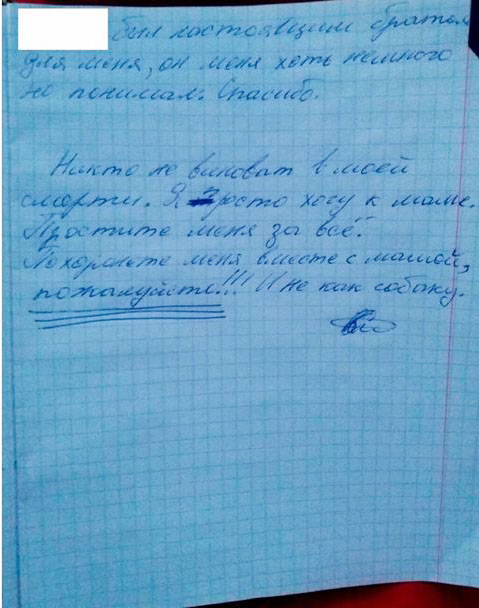 был настоящим братом
для меня, он меня хоть немного
но понимал. Спасибо.
Никто не виноват в моей
смерти. Я просто хочу к маме.
Простите меня за всё.
Похороните меня вместе с мамой,
пожалуйста!!! И не как собаку.